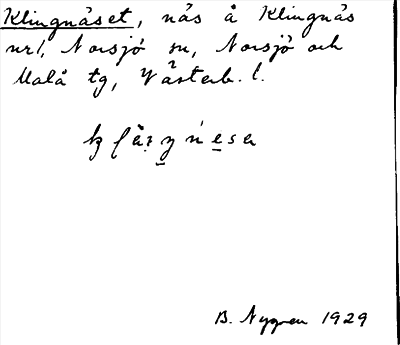 Klingnäset, näs å Klingnäs
nr1, Norsjö sn, Norsjö och
Malå tg, Västerb. l.
B. Nygren 1929